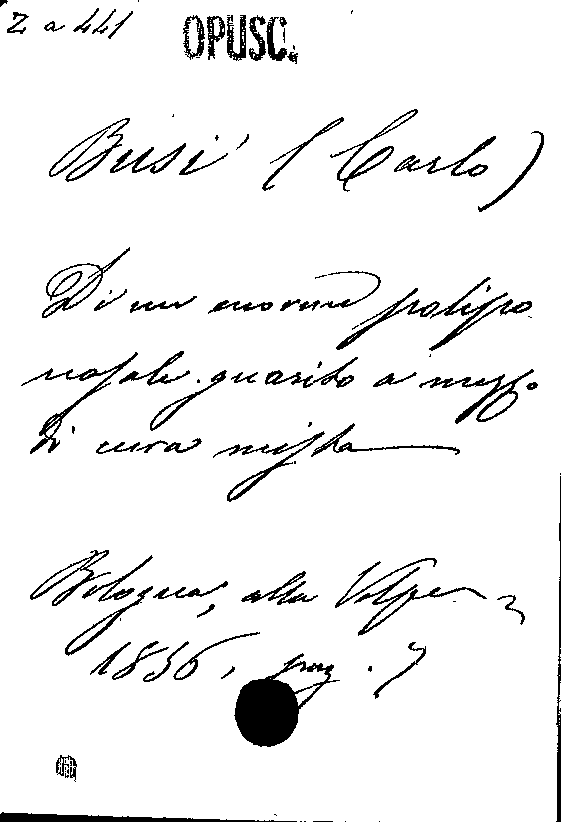 Z a 441
OPUSC.
Busi (Carlo)
Di un enorme polipo
nasale guarito a mezzo
di cura mista
Bologna, alla Volpe
1836, pag. 7